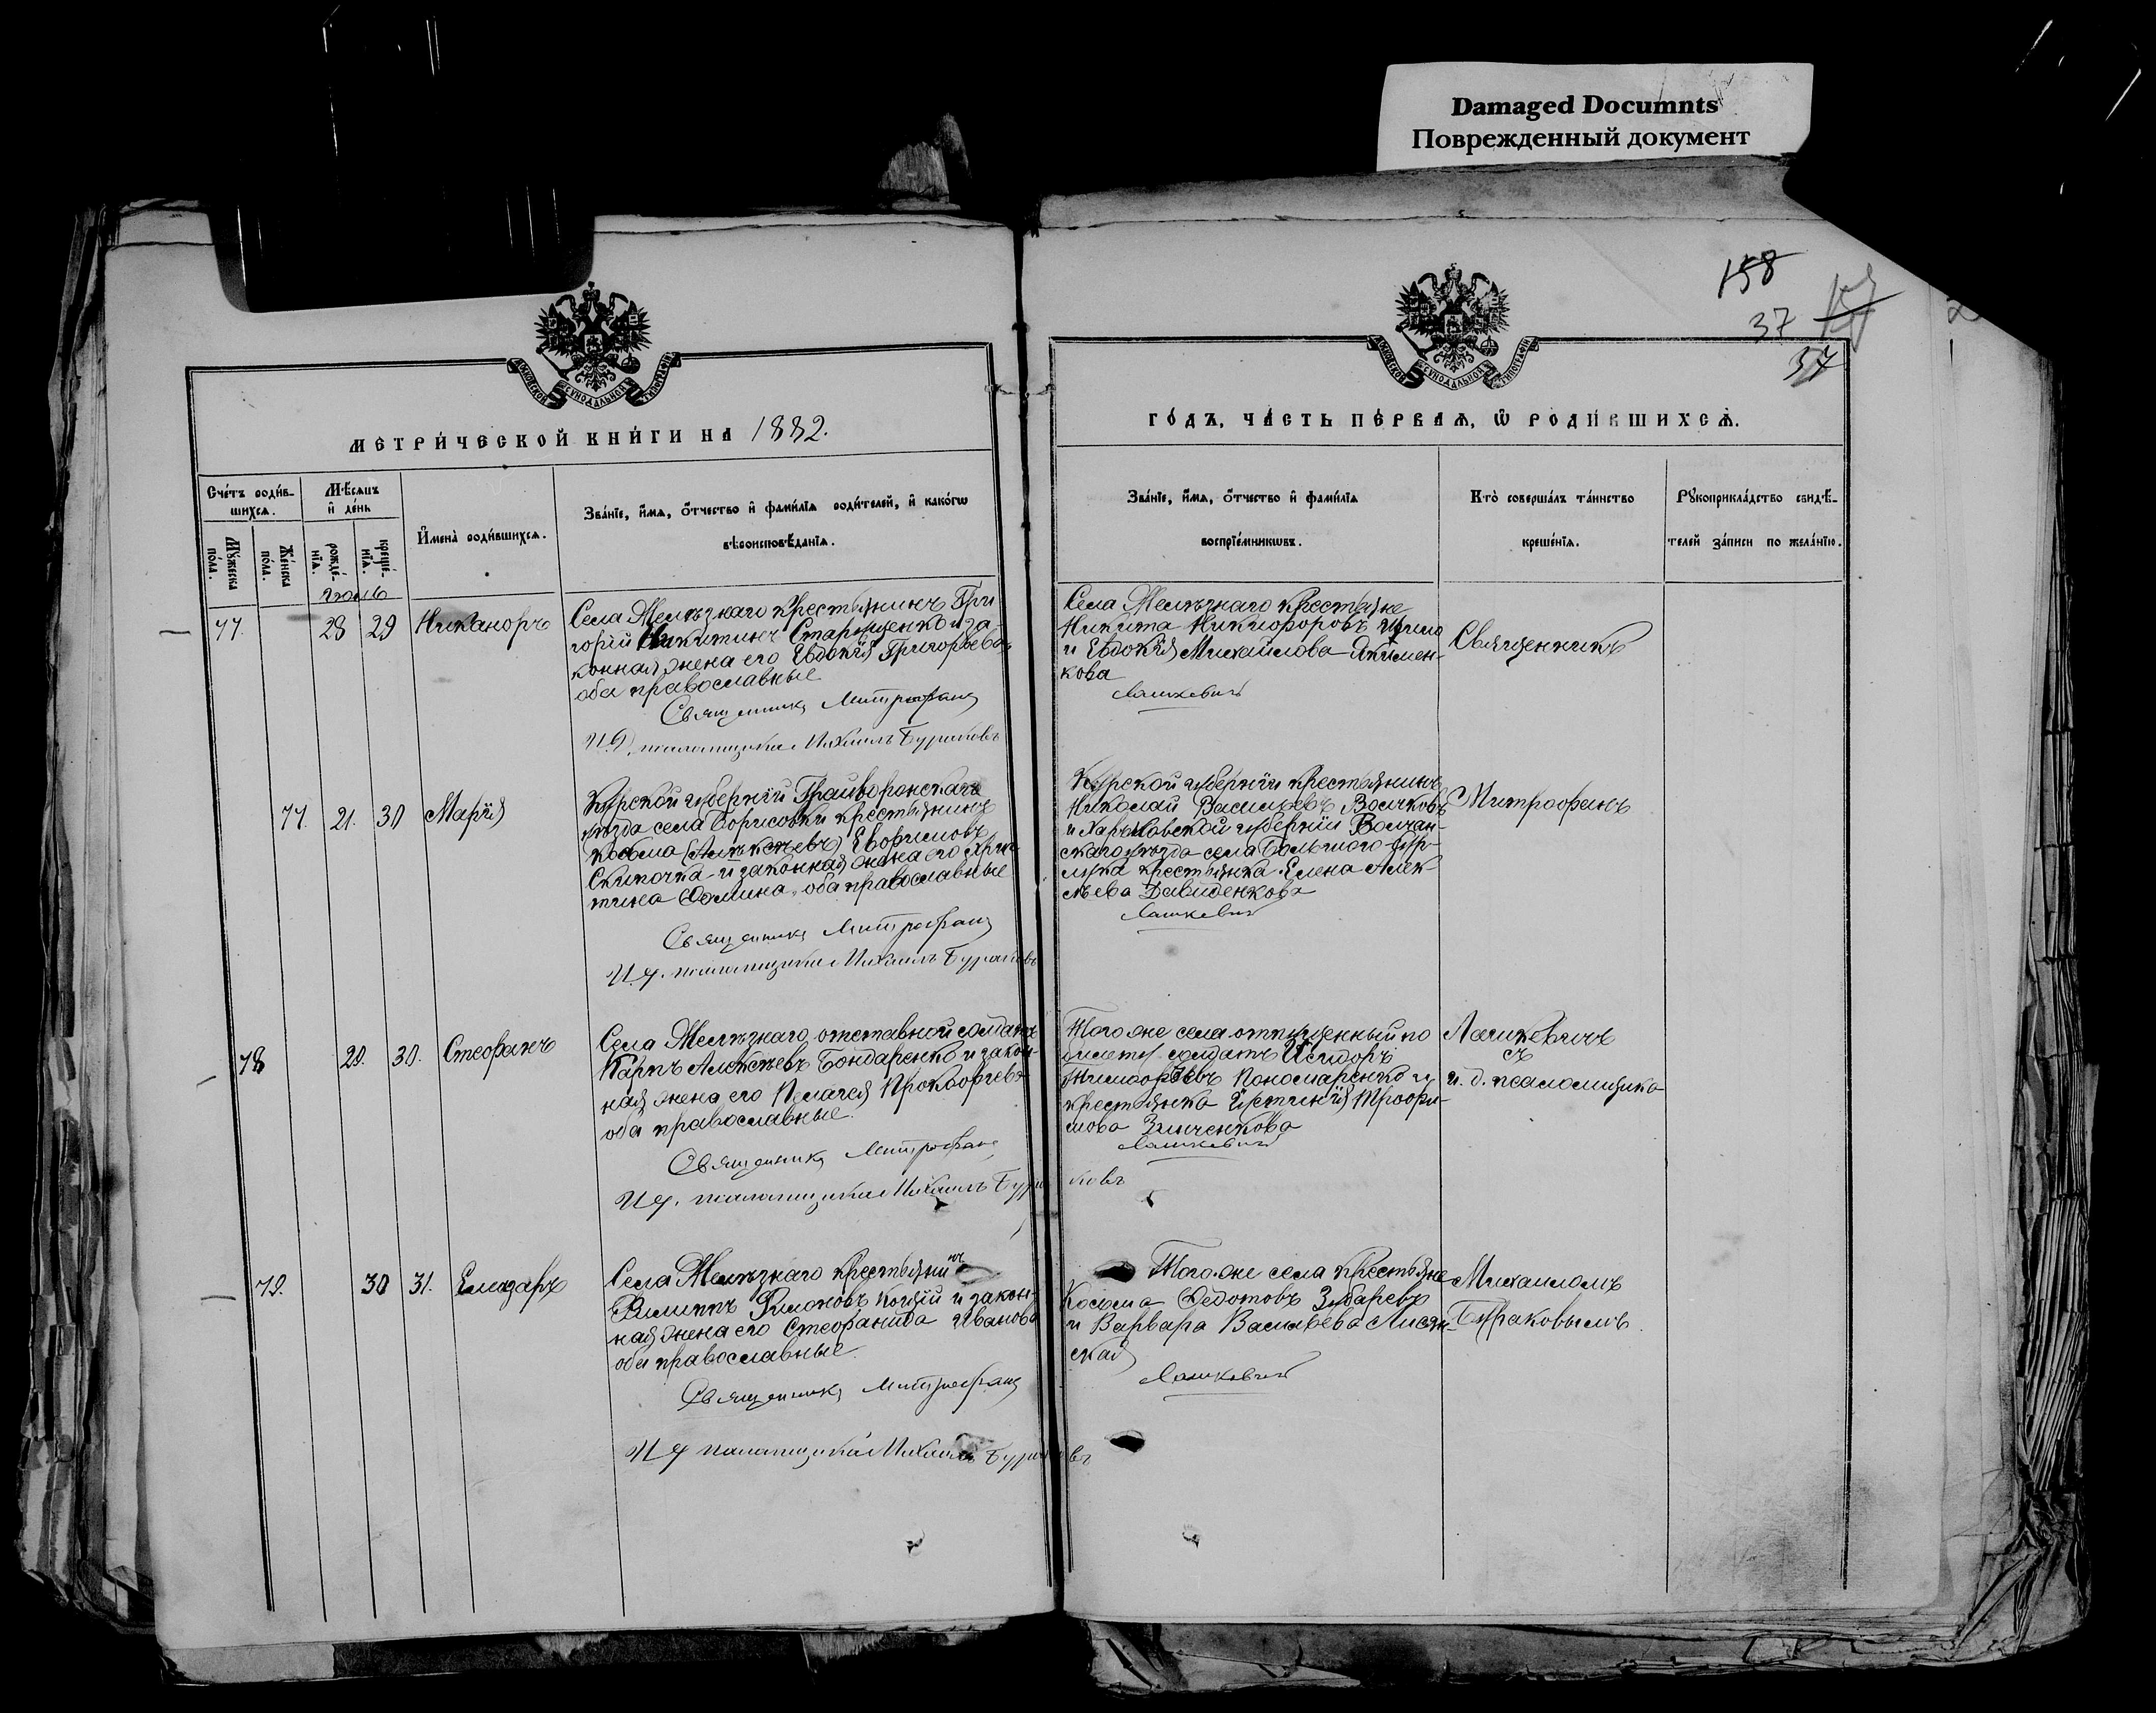 Damaged Documnts
Поврежденный документ
158
37
37
МОСКОВСКОЙ СѴНОДАЛЬНОЙ ТИПОГРАФІИ
МОСКОВСКОЙ СѴНОДАЛЬНОЙ ТИПОГРАФІИ
МЕТРИ́ЧЕСКОЙ КНИ́ГИ НА 1882.
ГО́ДЪ, ЧА́СТЬ ПЕ́РВАѦ, Ѿ РОДИ́ВШИХСѦ.
Сче́тъ роди́в-
шихсѧ.
Мꙋ́жеска по́ла.
Же́нска по́ла.
Мѣ́сѧцъ и҆ де́нь
рожде́-нїѧ.
креще́-нїѧ.
И҆мена̀ роди́вшихсѧ.
Зва́нїе, и҆́мѧ, ѻ҆́тчество и҆ фами́лїѧ роди́телей, и҆ како́гѡ
вѣроисповѣ́данїѧ.
Зва́нїе, и҆́мѧ, ѻ҆́тчество и҆ фами́лїѧ
воспрїе́мникѡвъ.
Кто̀ соверша́лъ та́инство
креще́нїѧ.
Рꙋкоприкла́дство свидѣ́-
телей за́писи по жела́нїю.
77. 28 29 Никаноръ
Крестьянинъ Гри-
горій Никитинъ и за-
конная жена его Евдокія Григорьева
оба православные
Священникъ Митрофанъ
И. д. псаломщика Михаилъ Бураковъ
крестьяне
Никита Никифоровъ
и Евдокія Михайлова Якимен-
кова
Лашкевичъ
Священникъ
77. 21. 30 Марія
Курской губерніи Грайворонскаго
уѣзда села Борисовки крестьянинъ
Косьма (Алексѣевъ) Евфимовъ
Скипочка и законная жена его Хрис-
тина Фомина, оба православные
Священникъ Митрофанъ
И. д. псаломщика Михаилъ Бураковъ
Курской губерніи крестьянинъ
Николай Васильевъ Волчковъ
и Харьковской губерніи Волчан-
скаго уѣзда села Большого Бур-
лука крестьянка Елена Алек-
сѣева Давиденкова
Лашкевичъ
Митрофанъ
78 20. 30. Стефанъ
отставной солдатъ
Карпъ Алексѣевъ Бондаренко и закон-
ная жена его Пелагея Прокофьева
оба православные.
Священникъ Митрофанъ
И. д. псаломщика Михаилъ Бура-
ковъ
Того же села отпущенный по
билету солдатъ Исидоръ
Тимофѣевъ Пономаренко и
крестьянка Трофи-
мова Зинченкова
Лашкевичъ
Лашкевичъ
съ
и. д. псаломщика
79. 30 31. Елеазаръ
крестьянинъ
Филиппъ и закон-
ная жена его Стефанида Иванова
оба православные.
Священникъ Митрофанъ
И д псаломщика Михаилъ Бураковъ
Того же села крестьяне
Косьма Федотовъ Зубаревъ
и Варвара Васильева Лисян-
ская
Лашкевичъ
Михаиломъ
Бураковымъ.